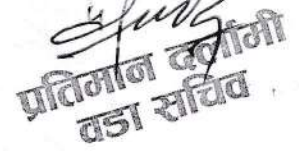 प्रतिमान दर्लामी
वडा सचिव